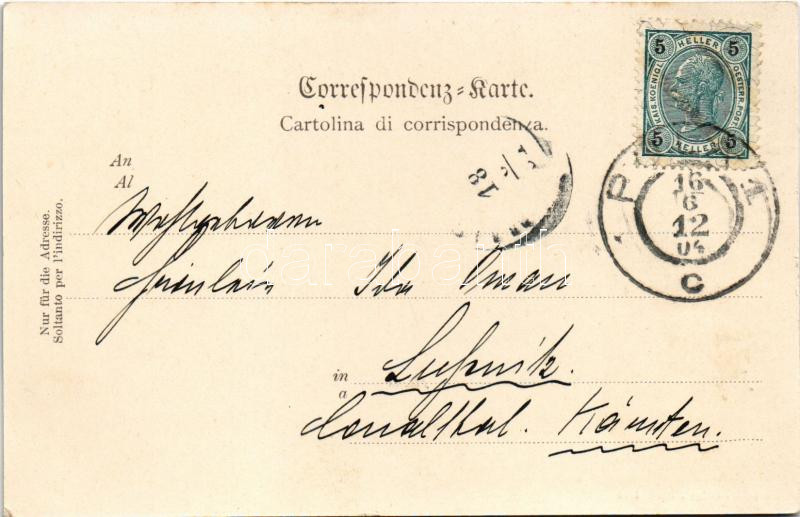 5 HELLER 5
KAIS. KOENIGL. OESTERR. POST.
5 HELLER 5
Correspondenz=Karte.
Cartolina di corrispondenza.
An
Al
18
16
6
12
04
C
Fräulein Ida
in Lußnitz.
a
Canalthal. Kärnten.
Nur für die Adresse.
Soltanto per l'indirizzo.
darabanth